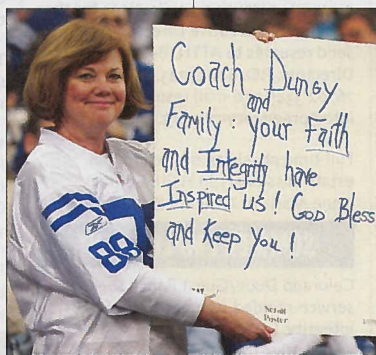 Coach Dungy
and
Family : your Faith
and Integrity have
Inspired us! God Bless
and Keep You!
88
Scroll
Poster